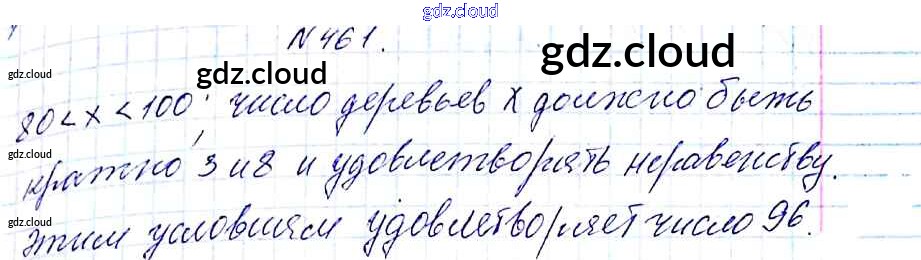 gdz.cloud
N 461.
gdz.cloud
gdz.cloud
gdz.cloud
80 < x < 100; число деревьев x должно быть
gdz.cloud
кратно 3 и 8 и удовлетворять неравенству.
gdz.cloud
Этим условиям удовлетворяет число 96.